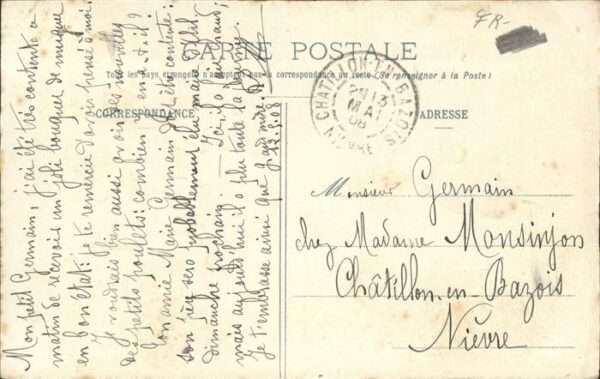 FR-
CARTE POSTALE
Tous les pays étrangers n'acceptent pas la correspondance au recto (Se renseigner à la Poste)
CORRESPONDANCE
ADRESSE
CHATILLON-EN-BAZOIS
13
MAI
08
NIEVRE
Mon petit Germain, j'ai été très contente ce
matin de recevoir un joli bouquet de muguet
en bon état: je te remercie d'avoir pensé à moi.
Je voudrais bien aussi avoir des nouvelles
des petits poulets: combien y en a-t-il?
ton amie Marie Germain a été contente:
j'y serai probablement du
dimanche prochain. — Ici, il a fait chaud;
mais aujourd'hui il a plu toute la
je t'embrasse ainsi que grand'mère.
12.5.08
Monsieur Germain
chez Madame Monsinjon
Châtillon-en-Bazois
Nièvre